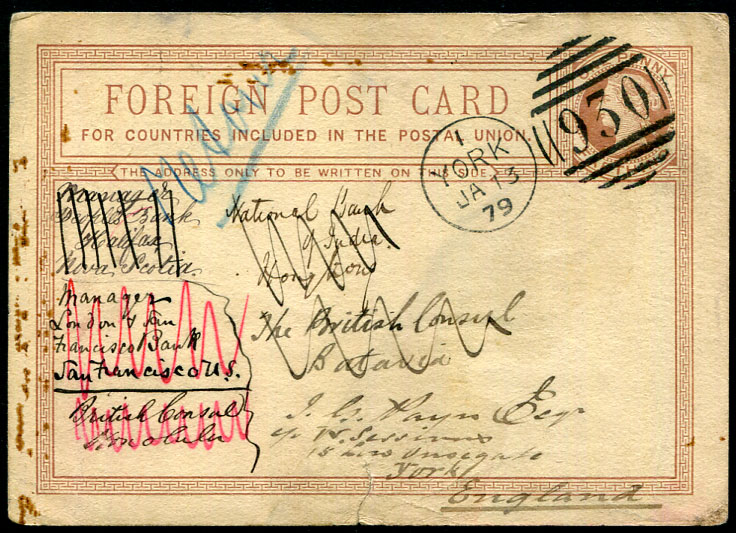 FOREIGN POST CARD
FOR COUNTRIES INCLUDED IN THE POSTAL UNION.
THE ADDRESS ONLY TO BE WRITTEN ON THIS SIDE.
PENNY
930
1
YORK
JA 13
79
Manager
Bank
Halifax
Nova Scotia
Manager
London & San
Francisco Bank
San Francisco U.S.
British Consul
Honolulu
National Bank
of India
Hong Kong
The British Consul
Batavia
J. Esqr
c/o W.
15
York
England